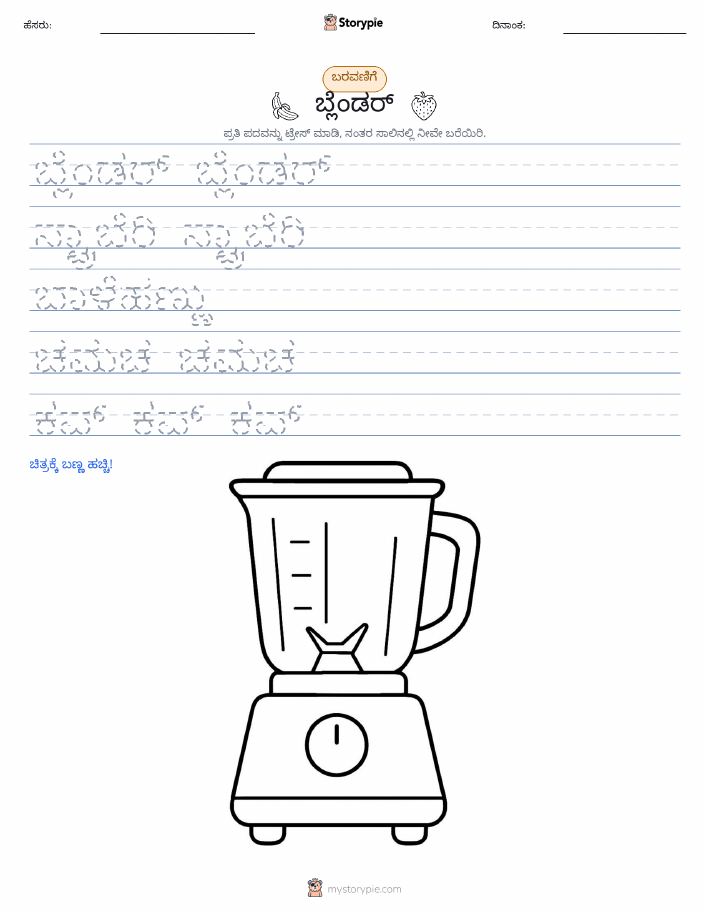 ಹೆಸರು: Storypie ದಿನಾಂಕ:
ಬರವಣಿಗೆ
ಬ್ಲೆಂಡರ್
ಪ್ರತಿ ಪದವನ್ನು ಟ್ರೇಸ್ ಮಾಡಿ, ನಂತರ ಸಾಲಿನಲ್ಲಿ ನೀವೇ ಬರೆಯಿರಿ.
ಬ್ಲೆಂಡರ್ ಬ್ಲೆಂಡರ್
ಸ್ಟ್ರಾಬೆರಿ ಸ್ಟ್ರಾಬೆರಿ
ಬಾಳೆಹಣ್ಣು
ಚಮಚ ಚಮಚ
ಕಪ್ ಕಪ್ ಕಪ್
ಚಿತ್ರಕ್ಕೆ ಬಣ್ಣ ಹಚ್ಚಿ!
mystorypie.com